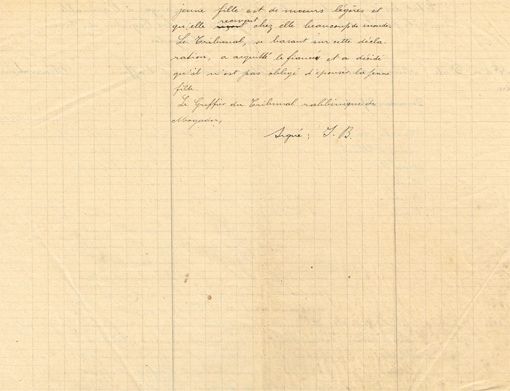 jeune fille est de moeurs légères et
qu'elle reçoit chez elle beaucoup de monde.
Le Tribunal, se basant sur cette décla
ration, a acquitté le fiancé et a décidé
qu'il n'est pas obligé d'épouser la jeune
fille.
Le Greffier du Tribunal rabbinique de
Mogador,
Signé: J. B.